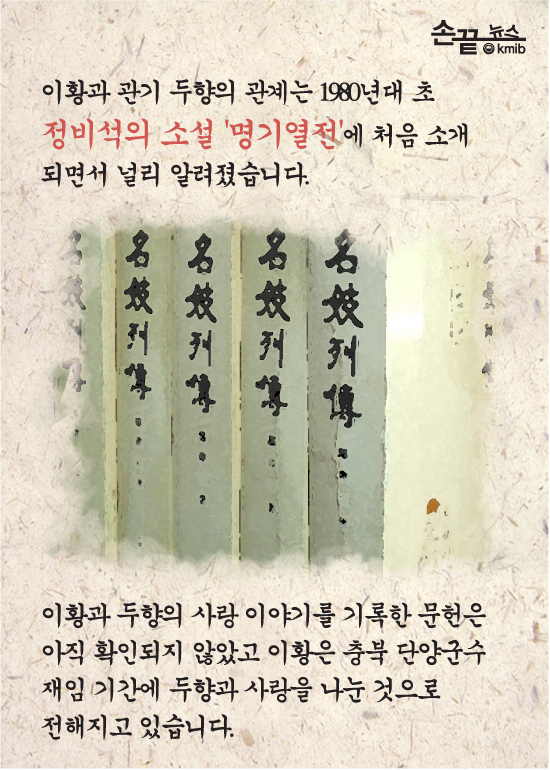 손끝 뉴스
kmib
이황과 관기 두향의 관계는 1980년대 초
정비석의 소설 '명기열전'에 처음 소개
되면서 널리 알려졌습니다.
名妓列傳
名妓列傳
名妓列傳
名妓列傳
名妓列傳
이황과 두향의 사랑 이야기를 기록한 문헌은
아직 확인되지 않았고 이황은 충북 단양군수
재임 기간에 두향과 사랑을 나눈 것으로
전해지고 있습니다.